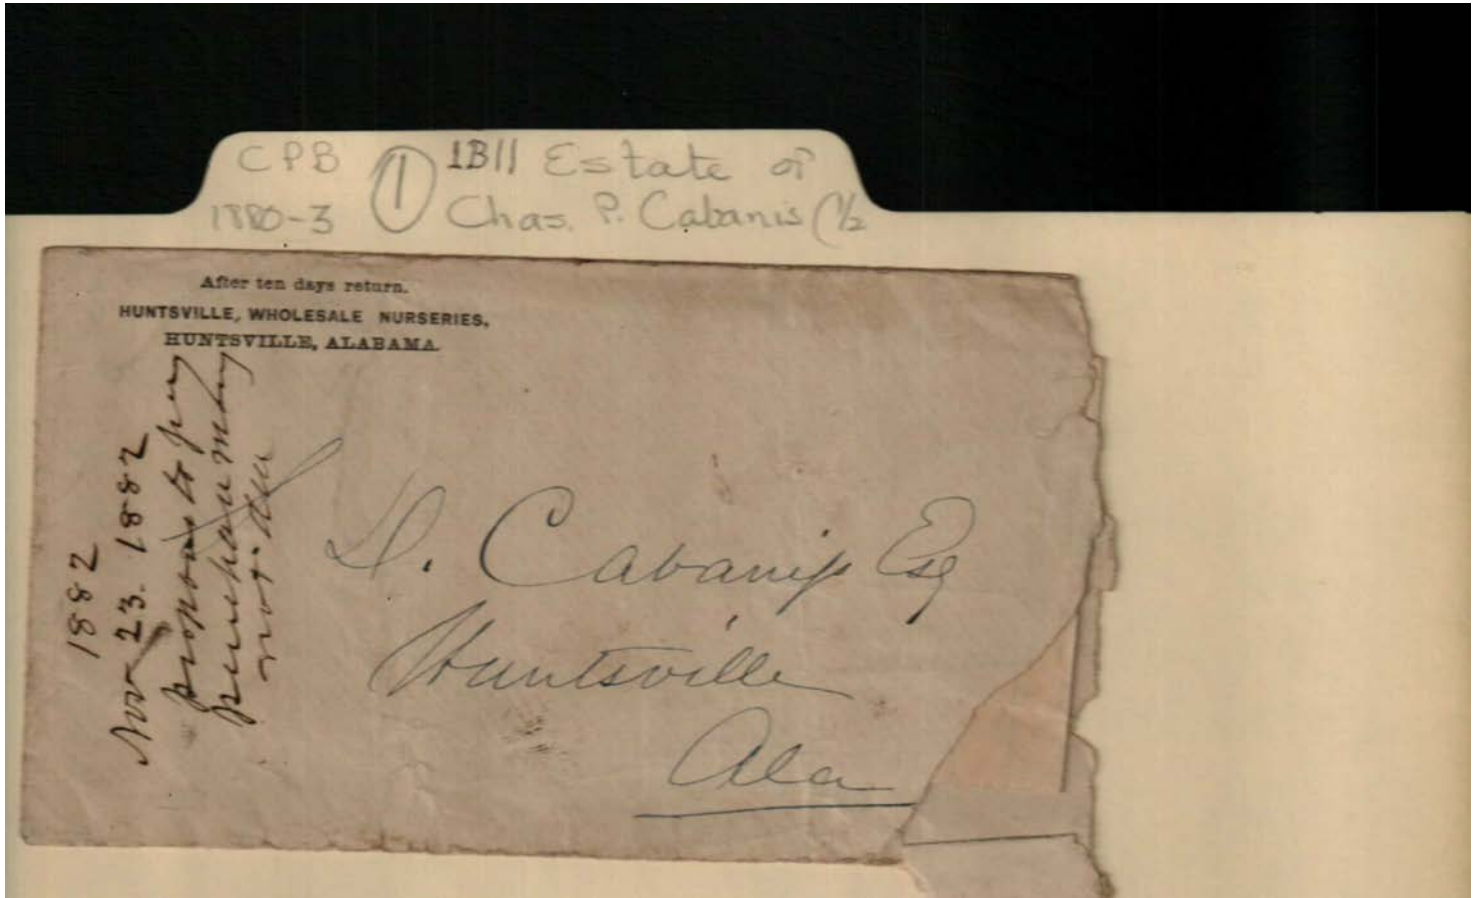 CPB
1880-3
1
1B11 Estate of
Chas. P. Cabanis (1/2
After ten days return.
HUNTSVILLE, WHOLESALE NURSERIES,
HUNTSVILLE, ALABAMA.
1882
Nov 23. 1882
to pay
purchase money
D. Cabaniss Esq
Huntsville
Ala